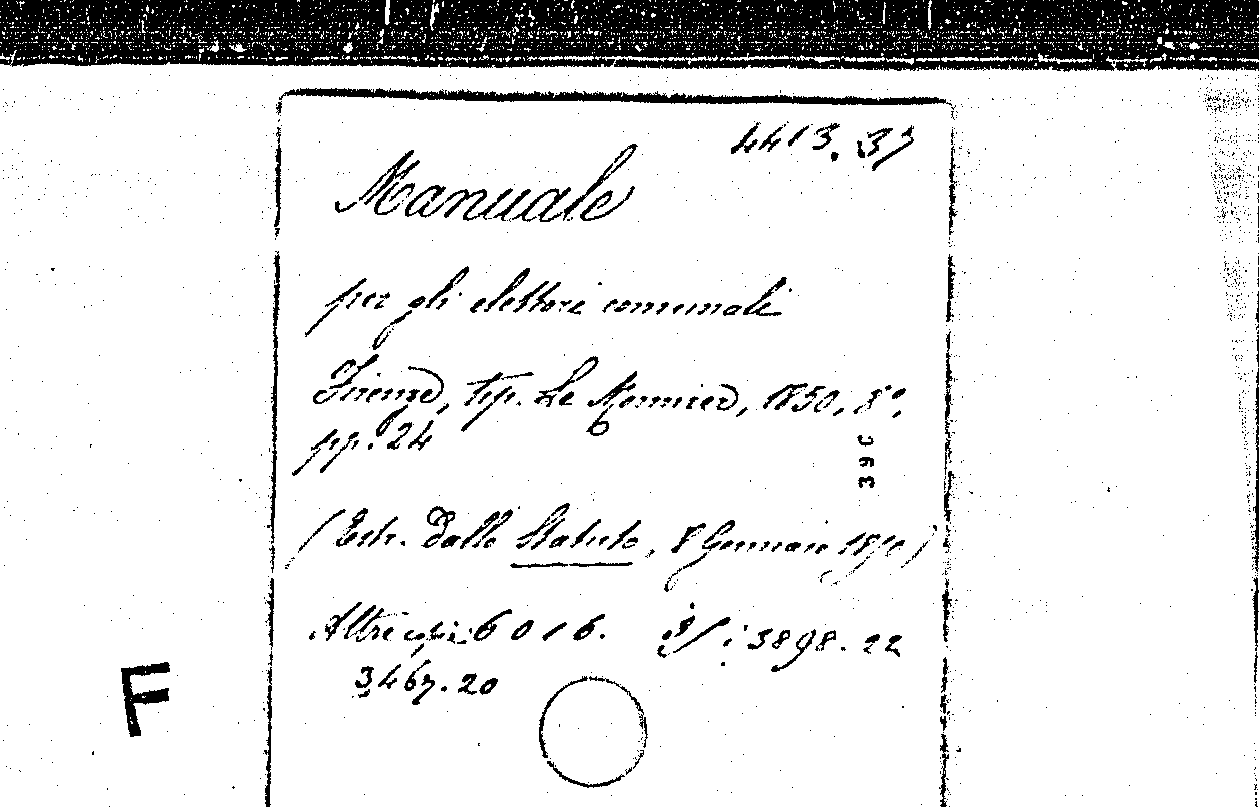 4413. 37
Manuale
per gli elettori comunali
Firenze, tip. Le Monnier, 1850, 8°,
pp. 24
39C
(Estr. dallo Statuto, 8 Gennaio 1850)
Altre copie: 6016. 3898. 22
3467. 20
F